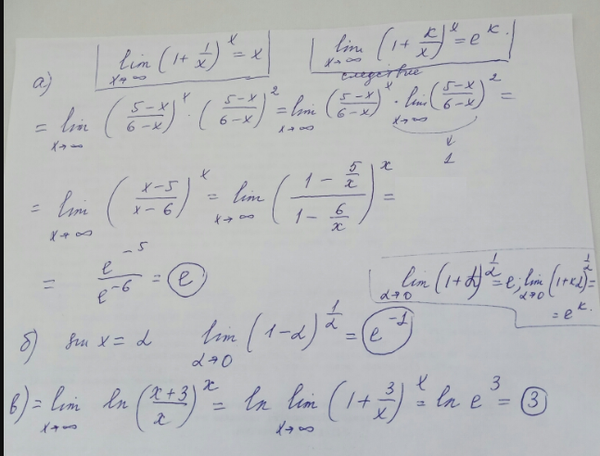 lim x→∞ (1 + 1/x)^x = x
lim x→∞ (1 + k/x)^x = e^k.
следствие
а)
= lim x→∞ ((5-x)/(6-x))^x · ((5-x)/(6-x))^2 = lim x→∞ ((5-x)/(6-x))^x · lim x→∞ ((5-x)/(6-x))^2 =
1
= lim x→∞ ((x-5)/(x-6))^x = lim x→∞ ((1 - 5/x)/(1 - 6/x))^x =
= e^-5/e^-6 = e
lim α→0 (1+α)^1/α = e; lim α→0 (1+kα)^1/α =
= e^k.
б) sin x = α lim α→0 (1-α)^1/α = e^-1
в) = lim x→∞ ln((x+3)/x)^x = ln lim x→∞ (1 + 3/x)^x = ln e^3 = 3